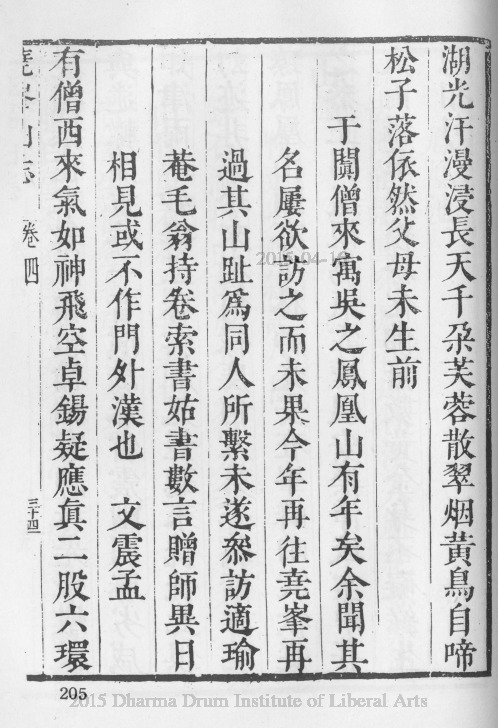 湖光汗漫浸長天千朶芙蓉散翠烟黄鳥自啼
松子落依然父母未生前
于闐僧來寓吳之鳳凰山有年矣余聞其
名屢欲訪之而未果今年再往堯峯再
過其山趾爲同人所繫未遂叅訪適瑜
菴毛翁持卷索書姑書數言贈師異日
相見或不作門外漢也　文震孟
有僧西來氣如神飛空卓錫疑應眞二股六環
堯峯山志　卷四　三十四
205
2015 Dharma Drum Institute of Liberal Arts